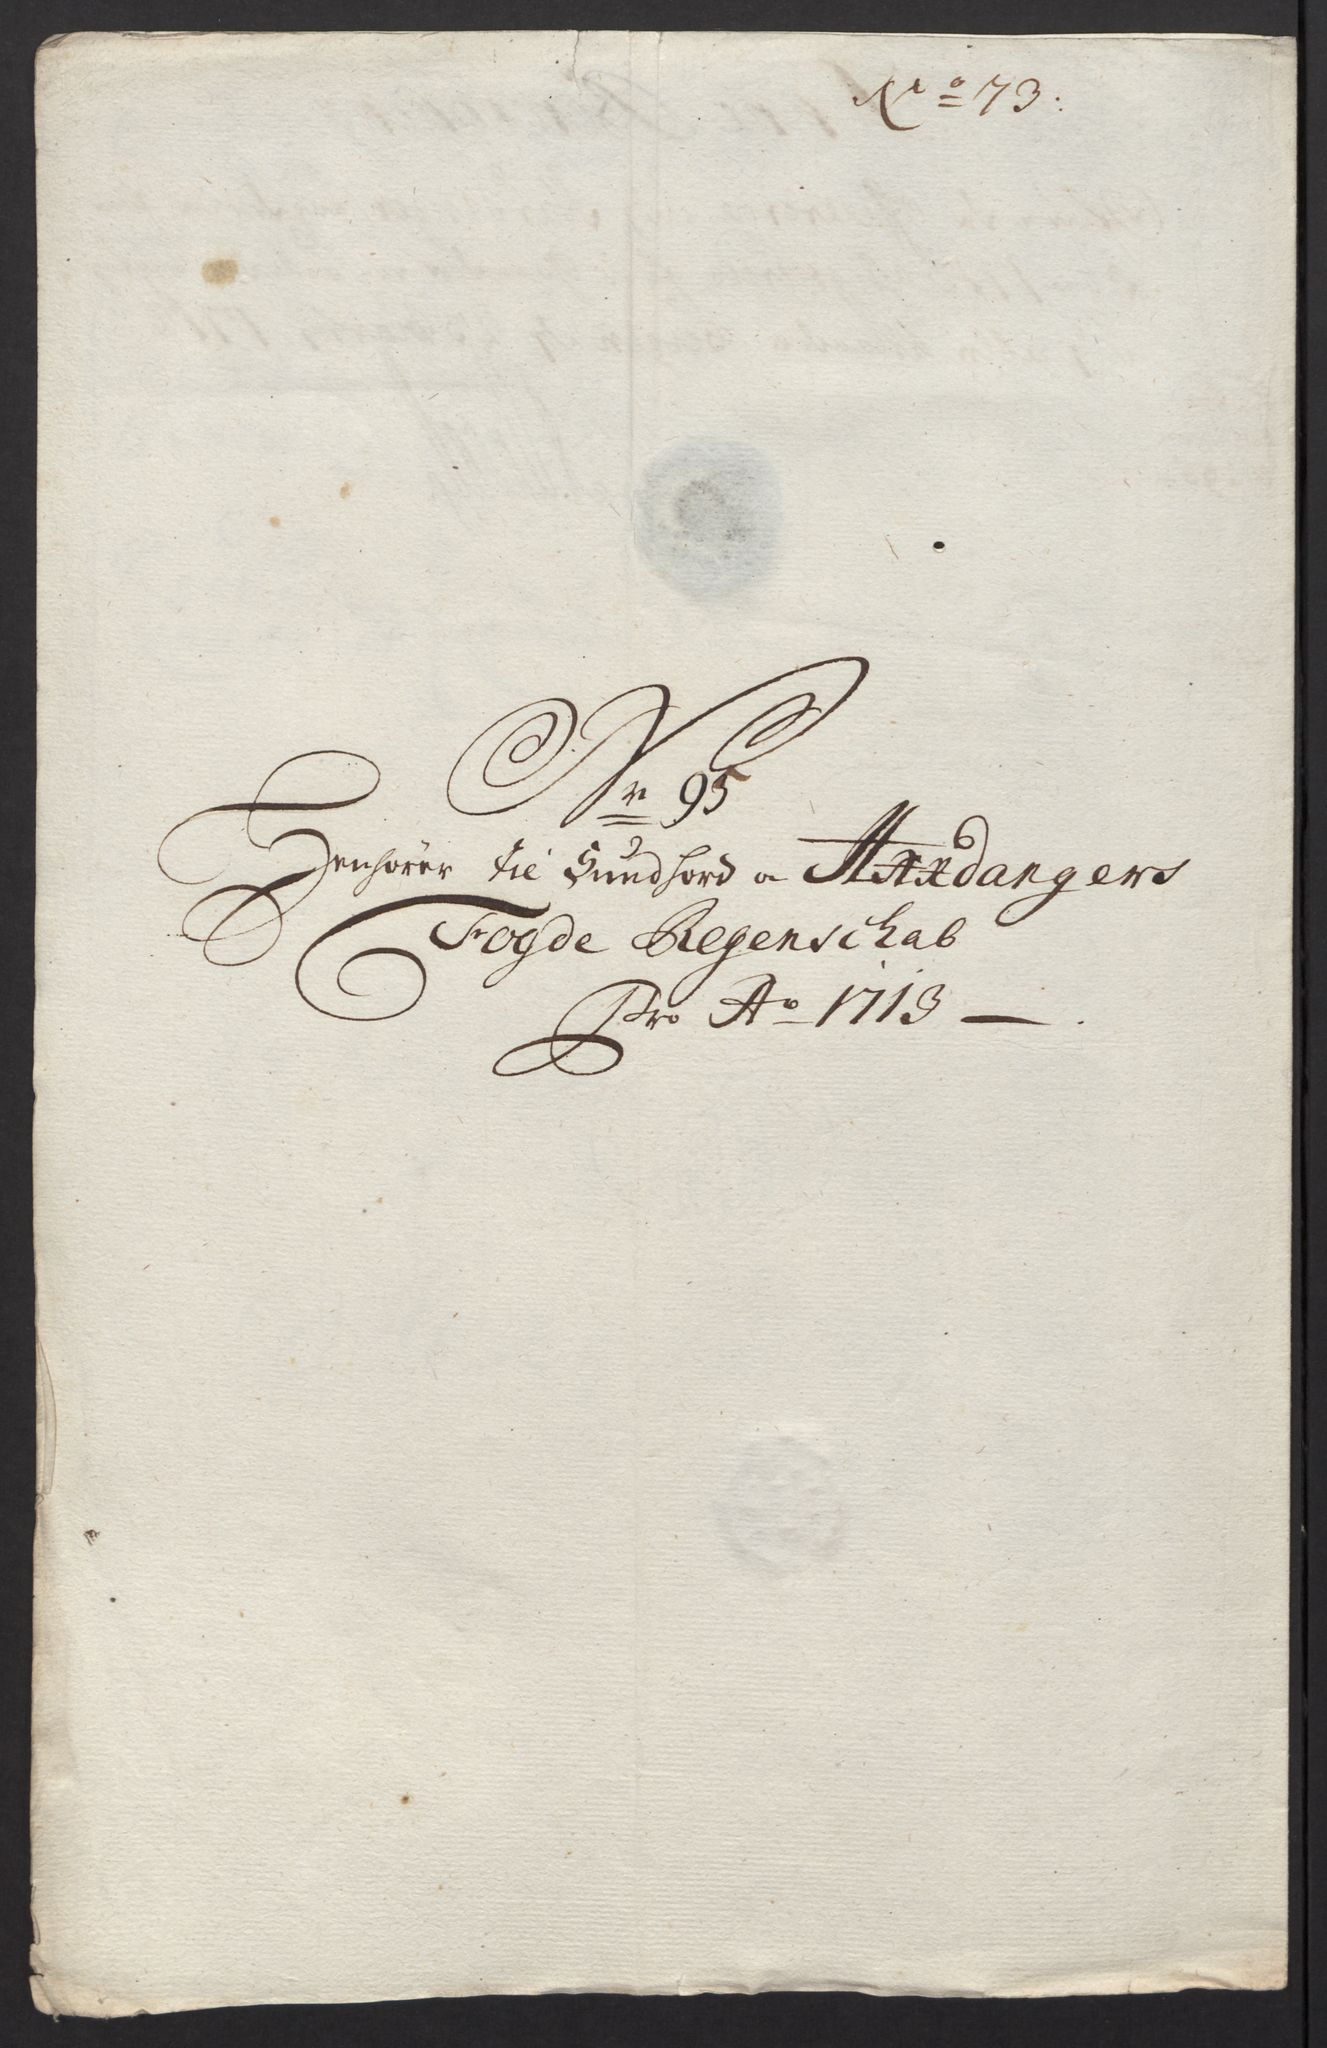 No 73:
Nr 95
Henhörer til Sundhord a Hardangers
Fogde Regenschab
Pro Ao 1713 —